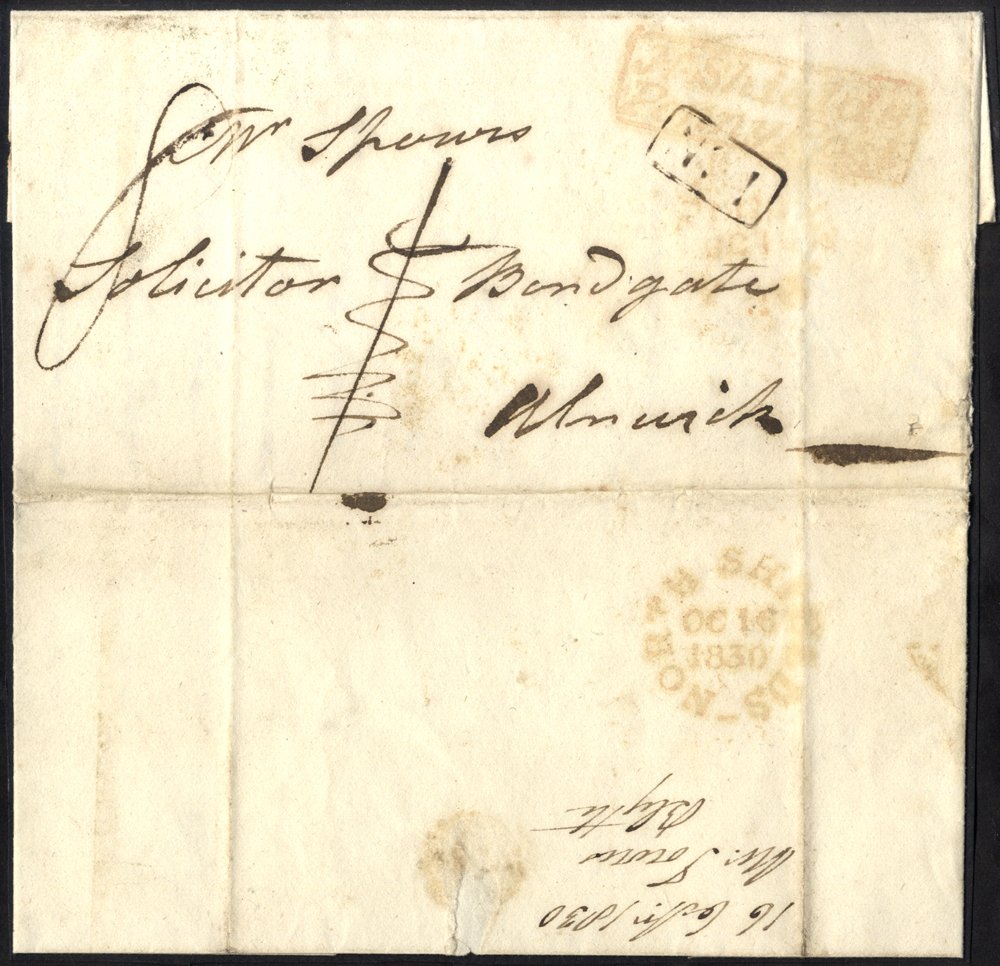 Mr Spours
Solicitor Bondgate
Alnwick
No. 1
NORTH SHIELDS
OC 16
1830
16 Octr. 1830
Mr. Towns
Blyth